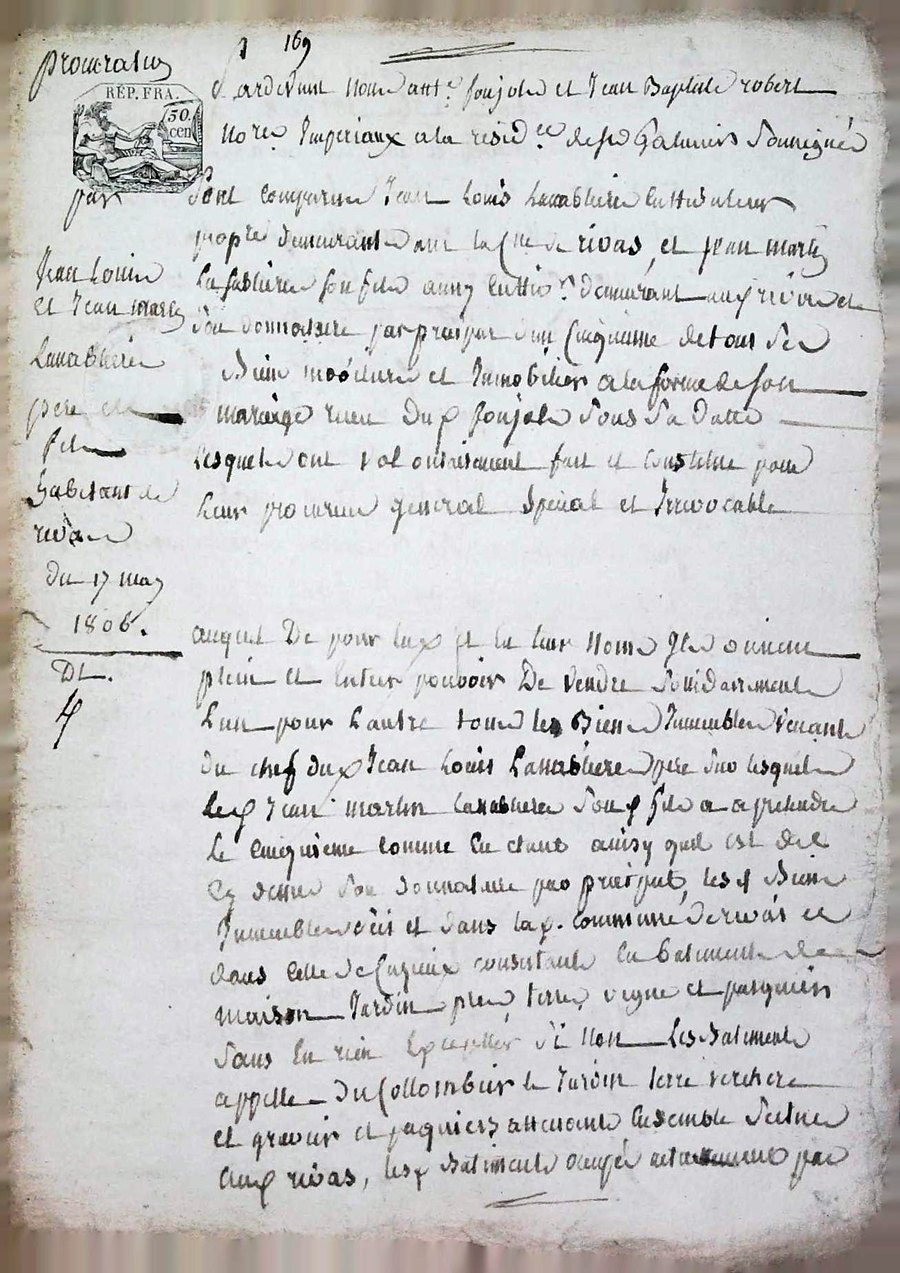 169
procuration
REP. FRA.
50
cen
par
Jean Louis
et Jean marti
Lanablierre
pere et
fils
habitant de
rivas
du 17 may
1806.
Dt.
4
Pardevant Nous ant.e poujole et Jean Baptiste robert
No.res Imperiaux a la resid.ce de St Galmier Soussigné
Sont comparus Jean Louis cultivateur
prop.re demeurant en la C.ne de rivas, et jean marti
son fils aussy cultiv.r demeurant aud. rivas et
Son donnataire par preciput d'un Cinquieme de tous Ses
Biens et Immobiliers a la forme de Son
mariage recu Dud poujole Sous Sa Datte
Lesquels ont volontairement fait et Constitué pour
Leur procureur general Special et Irrevocable
auquel De pour Eux et en leur Noms Ils donnent
plein et Entier pouvoir De vendre Solidairement
L'un pour L'autre tous les Biens Immeubles Venant
du chef dud Jean Louis pere Sur lesquels
led Jean martin Sond fils a a pretendre
Le Cinquieme comme En etant ainsy quil est dit
Cy dessus Son donnataire par preciput, lesd Biens
Immeubles et dans lad. Commune de rivas et
dans Celle de Cuzieux consistants En Batiments de
maison Jardin pred terre vigne et pasquiers
Sans En rien Excepter Si Non Les Batiments
appellé Du Collombier le Jardin terre verchere
et gravier et paquiers attenants Ensemble Scitué
Aud rivas, lesd Batiments occupé par